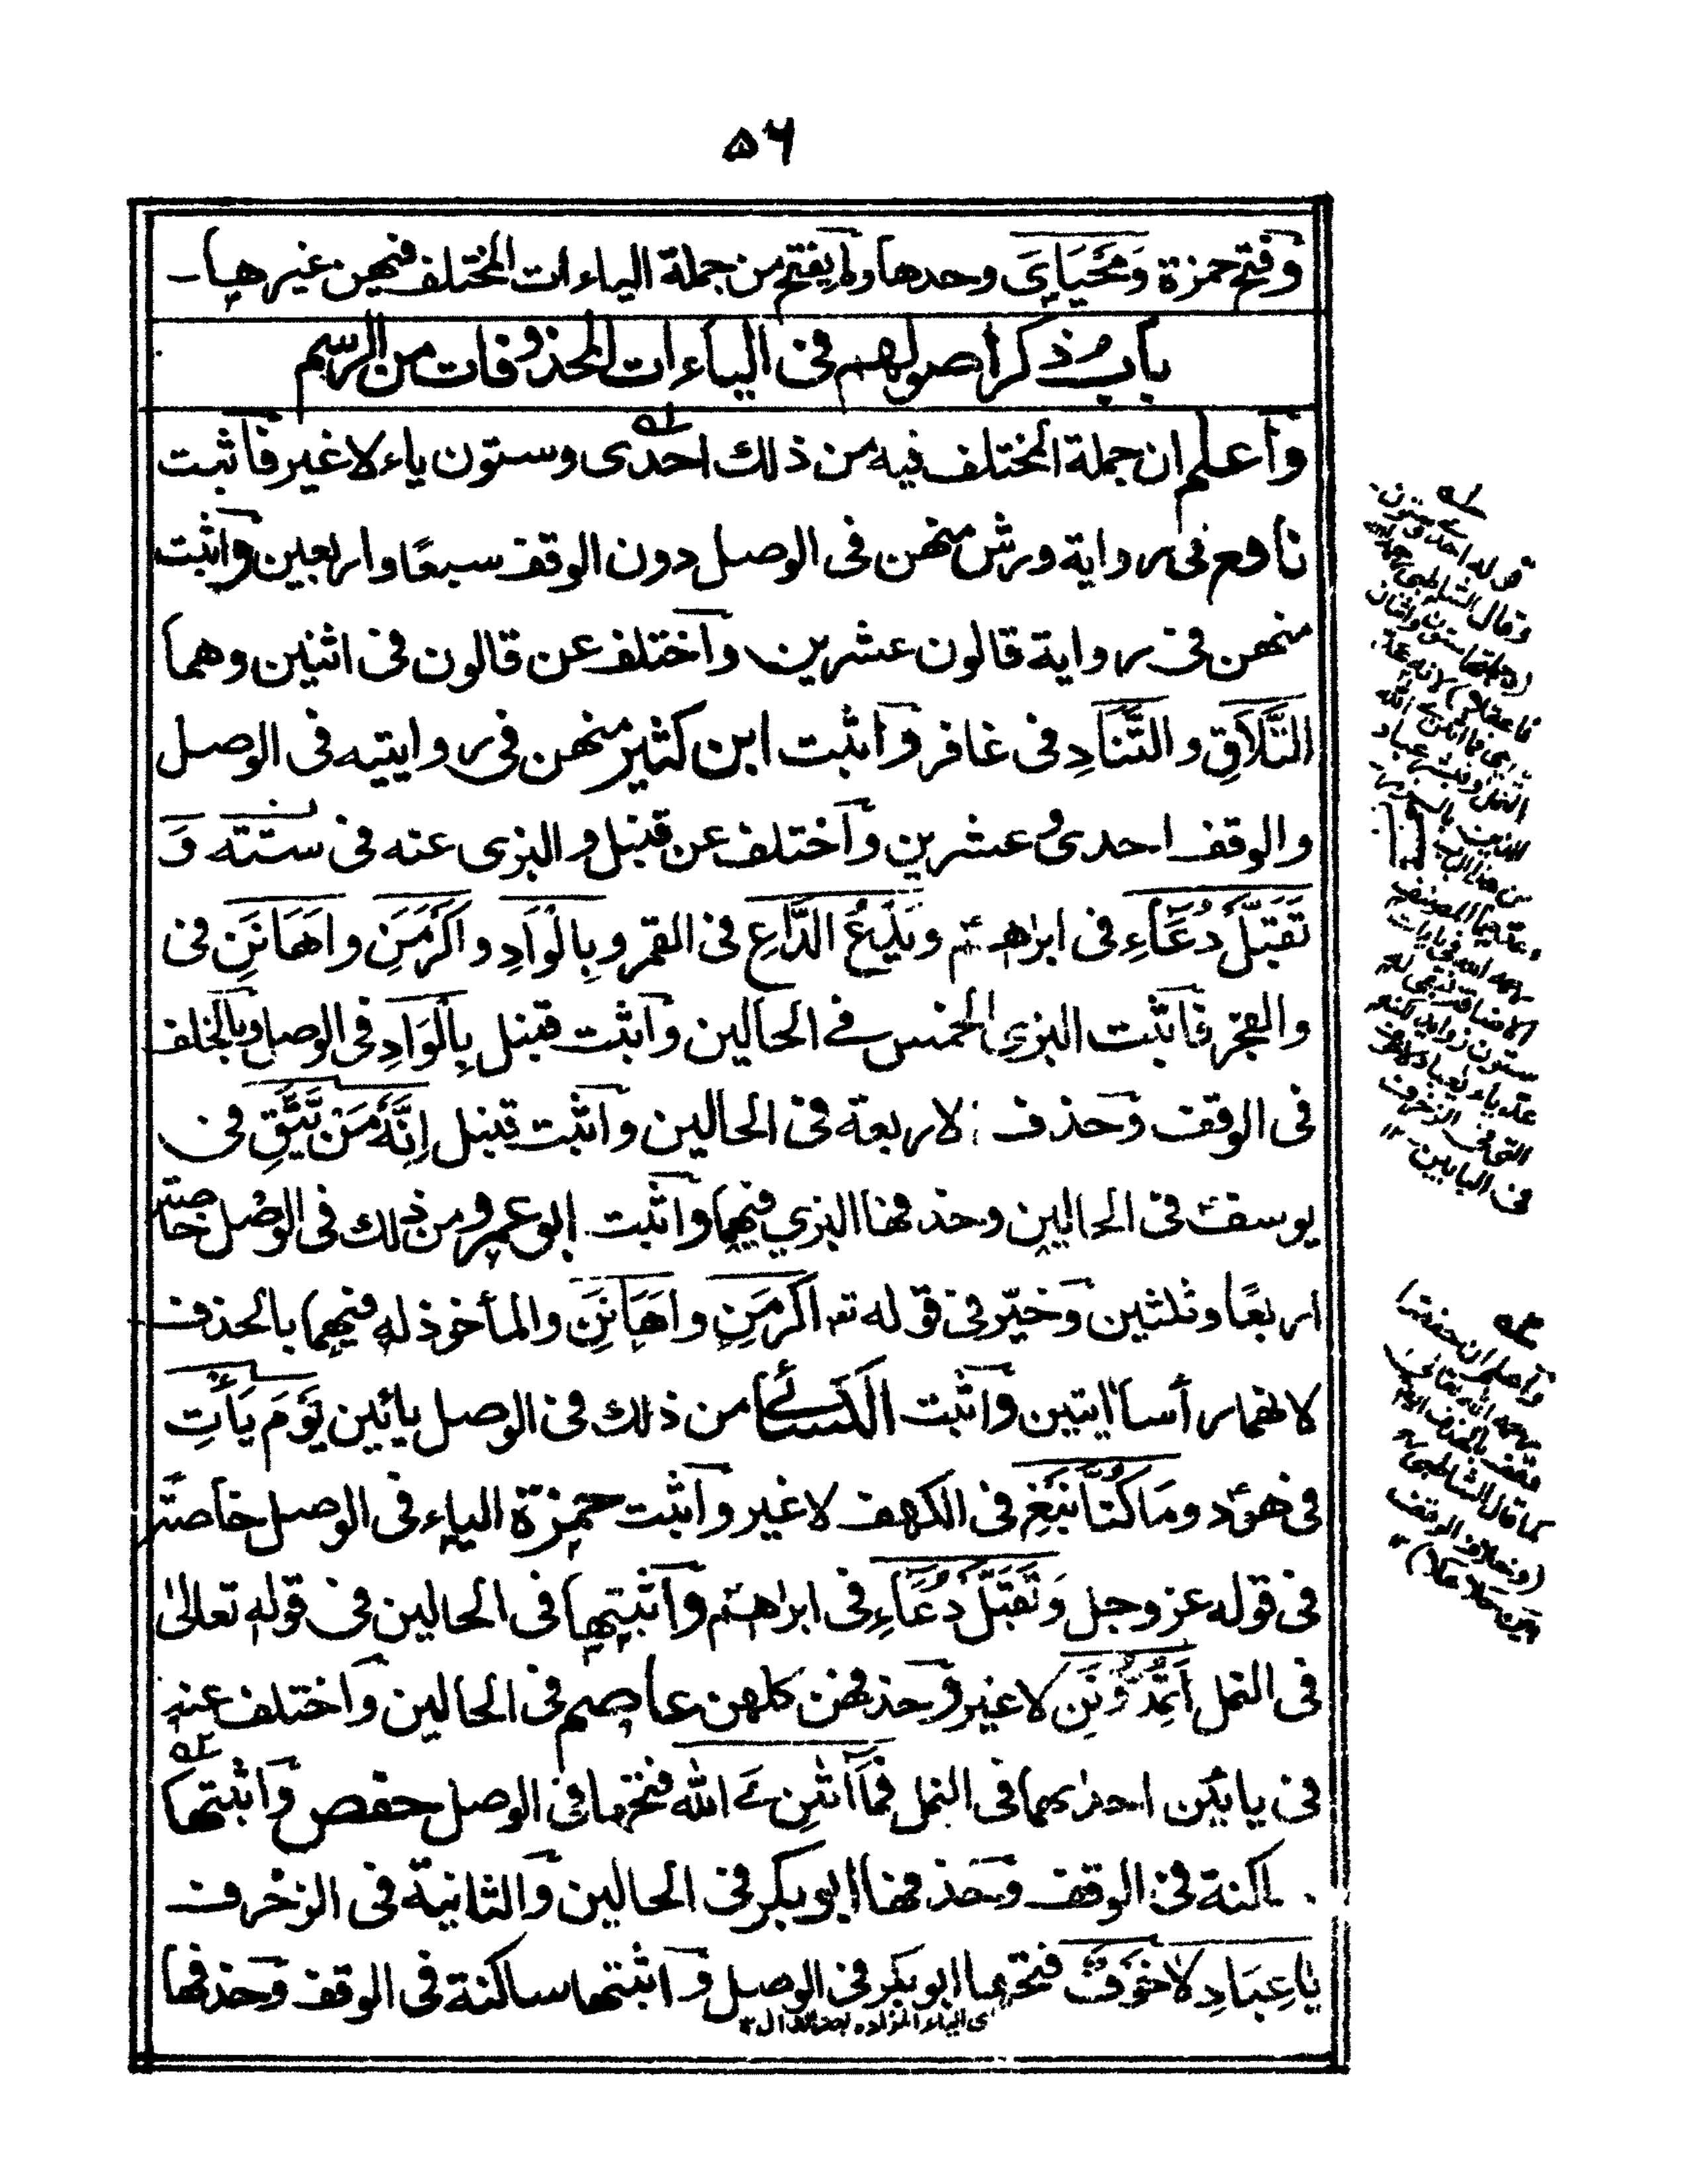 ۵۶
وفتح حمزة وَمَحْيَايَ وحدها ولم يفتح من جملة الياءات المختلف فيهن غيرها -
باب ذكر اصولهم فى الياءات المحذوفات من الرسم
واعلم ان جملة المختلف فيه من ذلك احدى وستون ياء لا غير فاثبت
نافع فى رواية ورش منهن فى الوصل دون الوقف سبعًا واربعين واثبت
منهن فى رواية قالون عشرين واختلف عن قالون فى اثنين وهما
التَّلَاقِ والتَّنَادِ فى غافر واثبت ابن كثير منهن فى روايتيه فى الوصل
والوقف احدى وعشرين واختلف عن قنبل والبزى عنه فى ستته وَ
تَقَبَّلْ دُعَاءِ فى ابراهيم ويَدْعُ الدَّاعِ فى القمر وبِالْوَادِ واَكْرَمَنِ واَهَانَنِ فى
والفجر فاثبت البزى الخمس فى الحالين واثبت قنبل بِالْوَادِ فى الوصل وبالخلف
فى الوقف وحذف الاربعة فى الحالين واثبت قنبل اِنَّهُ مَنْ يَّتَّقِ فى
يوسف فى الحالين وحذفها البزي فيهما واثبت ابو عمرو من ذلك فى الوصل خاصة
اربعًا وثلثين وخيّر فى قوله تع اَكْرَمَنِ واَهَانَنِ والمأخوذ له فيهما بالحذف
لانهما رأسا ايتين واثبت الكسائى من ذلك فى الوصل يائين يَوْمَ يَأْتِ
فى هود ومَا كُنَّا نَبْغِ فى الكهف لا غير واثبت حمزة الياء فى الوصل خاصة
فى قوله عز وجل وَتَقَبَّلْ دُعَاءِ فى ابراهيم واثبتها فى الحالين فى قوله تعالىٰ
فى النمل اَتُمِدُّونَنِ لا غير وحذفهن كلهن عاصم فى الحالين واختلف عنه
فى يائين احداهما فى النمل فَمَا اٰتٰنِ ےَ الله فتحها فى الوصل حفص واثبتها
ساكنة فى الوقف وحذفها ابو بكر فى الحالين والثانية فى الزخرف
يَا عِبَادِ لَا خَوْفٌ فتحها ابو بكر فى الوصل واثبتها ساكنة فى الوقف وحذفها
قوله احدى وستون
وقال الشاطبى
فى اليابين ١٢
واعلم ان حفصا
كما قال الشاطبى